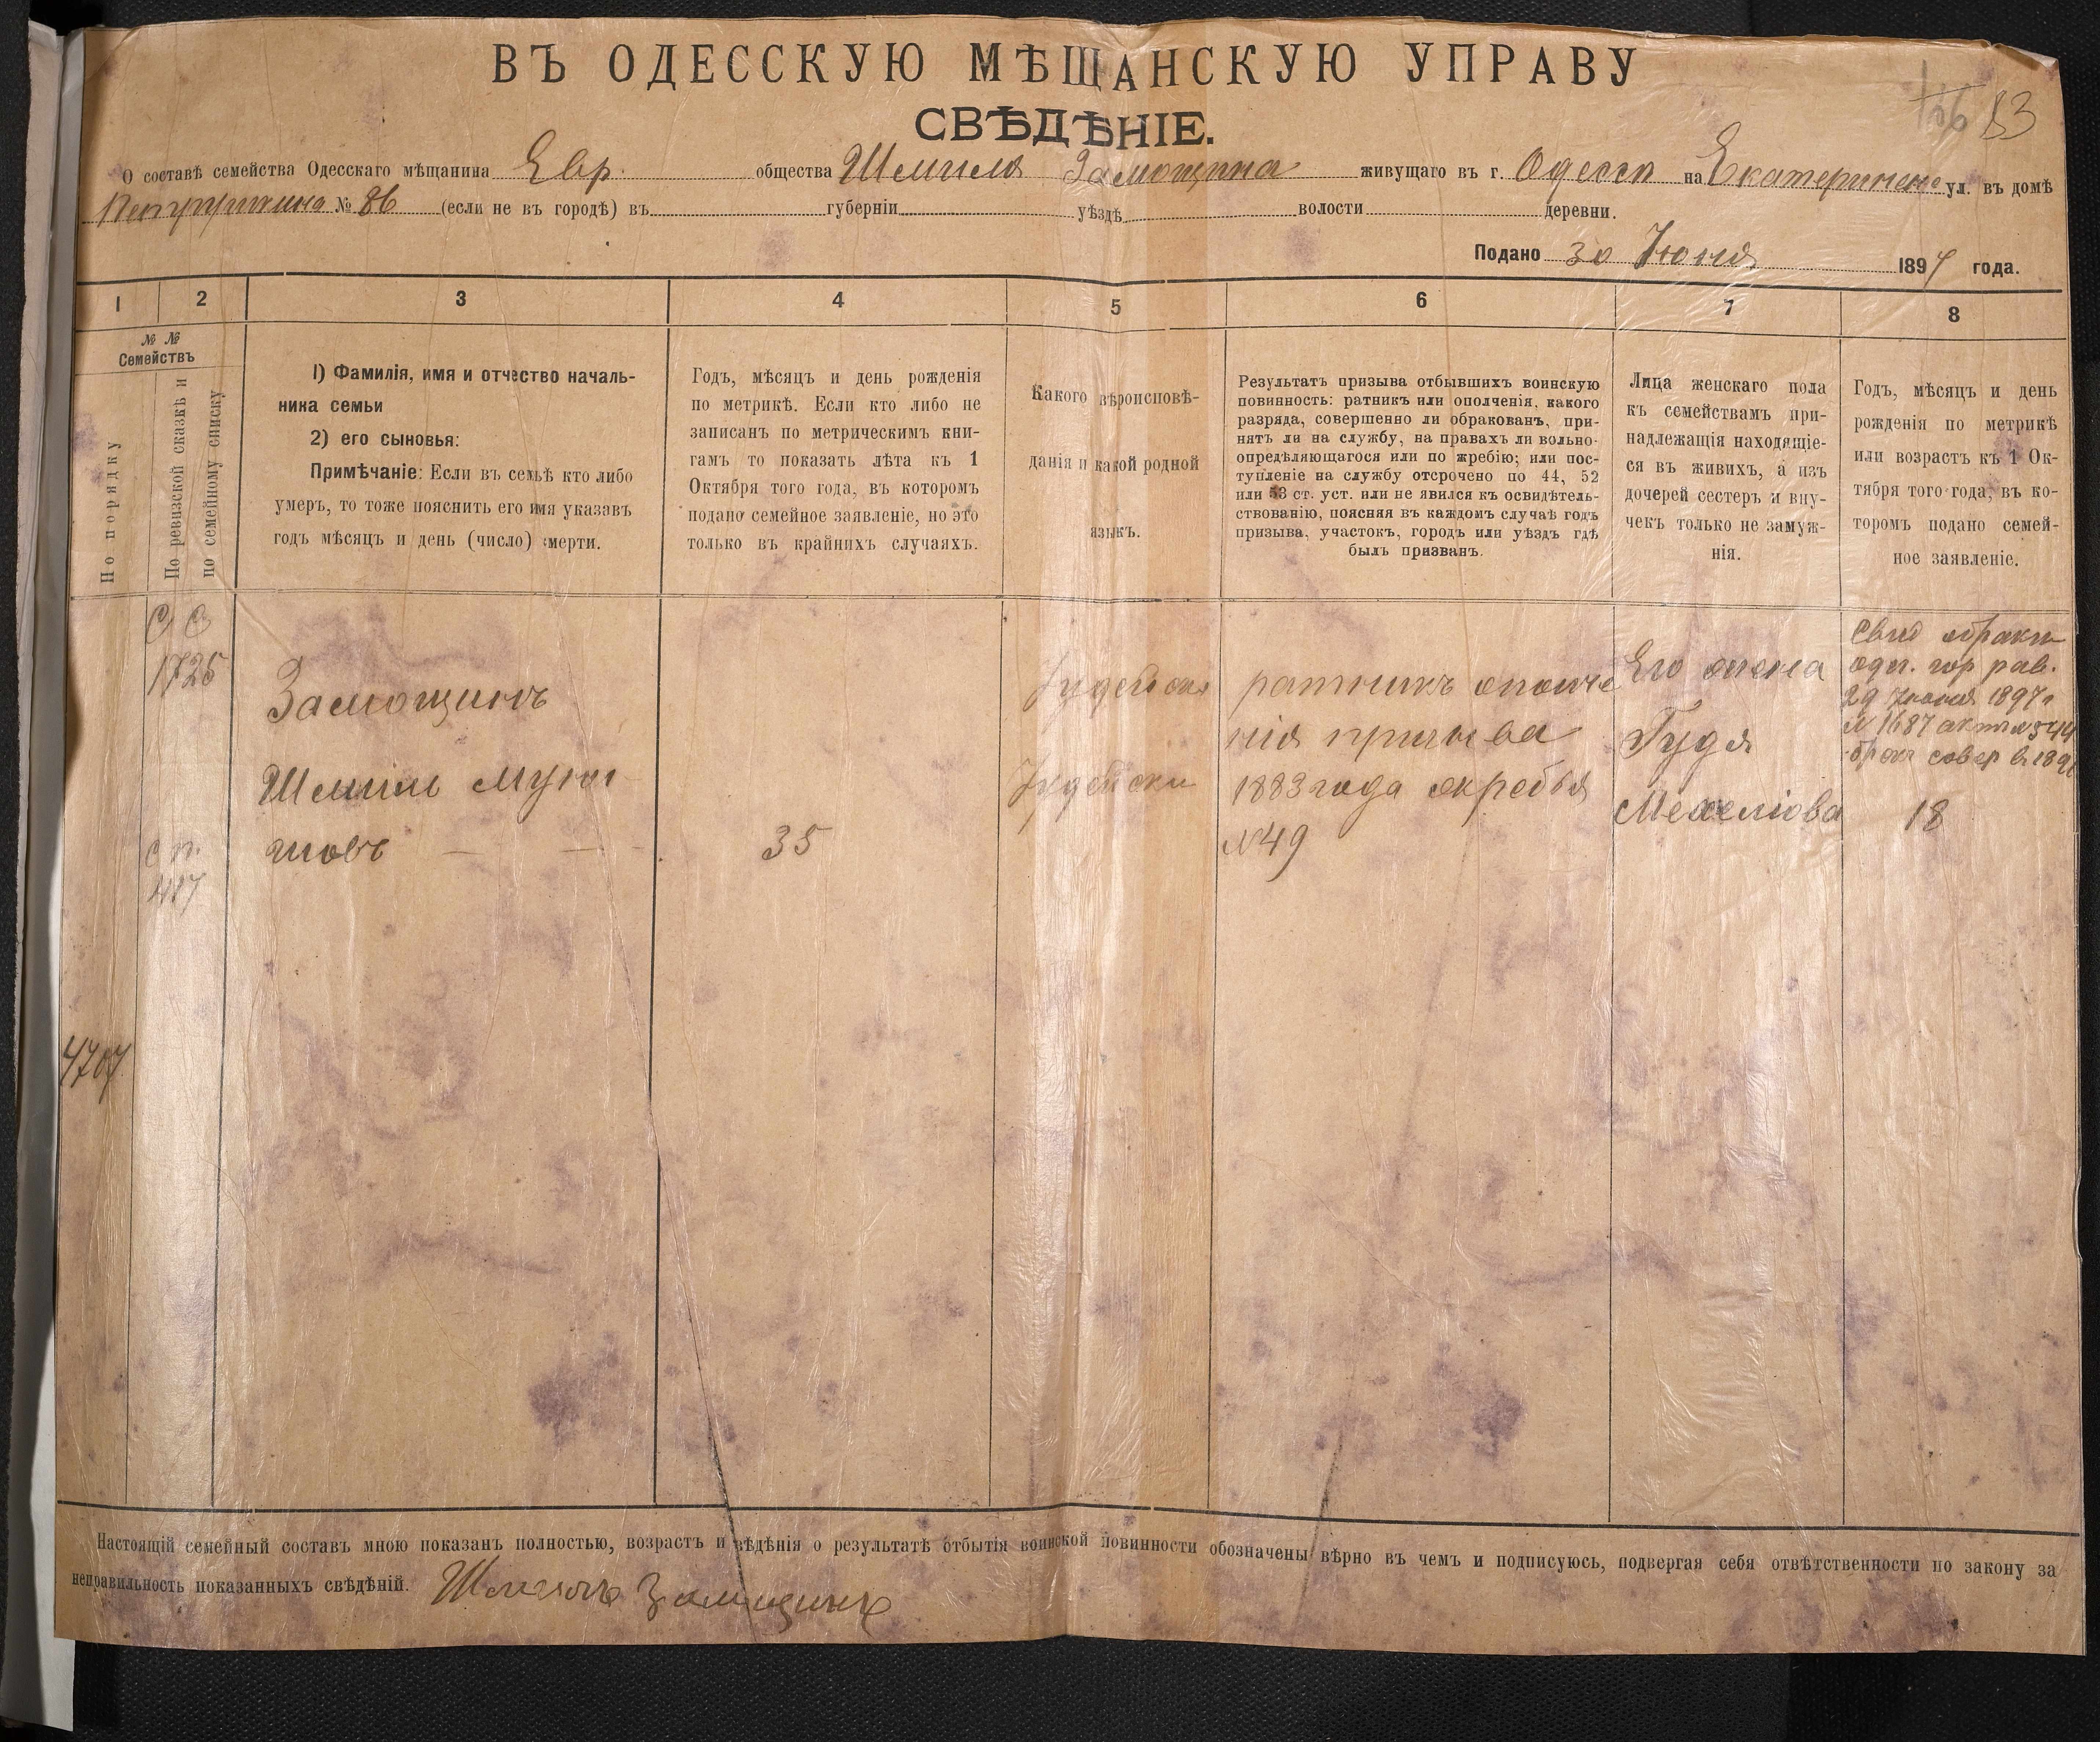 ВЪ ОДЕССКУЮ МѢЩАНСКУЮ УПРАВУ
СВѢДѢНІЕ.
83
О составѣ семейства Одесскаго мѣщанина Евр. общества Шмиля Замощина живущаго въ г. Одесса на Екатеринен ул. въ домѣ
№ 86 (если не въ городѣ) въ губерніи уѣздѣ волости деревни.
Подано 30 Іюня 1897 года.
1 2 3 4 5 6 7 8
№ №
Семействъ
По порядку
По ревизской сказкѣ и
по семейному списку
1) Фамилія, имя и отчество началь-
ника семьи
2) его сыновья:
Примѣчаніе: Если въ семьѣ кто либо
умеръ, то тоже пояснить его имя указавъ
годъ мѣсяцъ и день (число) смерти.
Годъ, мѣсяцъ и день рожденія
по метрикѣ. Если кто либо не
записанъ по метрическимъ кни-
гамъ то показать лѣта къ 1
Октября того года, въ которомъ
подано семейное заявленіе, но это
только въ крайнихъ случаяхъ.
Какого вѣроисповѣ-
данія и какой родной
языкъ.
Результатъ призыва отбывшихъ воинскую
повинность: ратникъ или ополченія, какого
разряда, совершенно ли обракованъ, при-
нятъ ли на службу, на правахъ ли вольно-
опредѣляющагося или по жребію; или пос-
тупленіе на службу отсрочено по 44, 52
или 53 ст. уст. или не явился къ освидѣтель-
ствованію, поясняя въ каждомъ случаѣ годъ
призыва, участокъ, городъ или уѣздъ гдѣ
былъ призванъ.
Лица женскаго пола
къ семействамъ при-
надлежащія находящіе-
ся въ живихъ, а изъ
дочерей сестеръ и вну-
чекъ только не замуж-
нія.
Годъ, мѣсяцъ и день
рожденія по метрикѣ
или возрастъ къ 1 Ок-
тября того года, въ ко-
торомъ подано семей-
ное заявленіе.
1725
417
4707
Замощинъ
Шмиль
35
Іудейска
ратникъ ополче
нія призыва
1883 года жребья
№ 49
Его жена
Гудя
Мехелюва
Свид о бракѣ
одес. гор рав.
29 Іюня 1897 г
№ 1687 актъ № 544
бракъ совер в 189
18
Настоящій семейный составъ мною показанъ полностью, возрастъ и вѣдѣнія о результатѣ отбытія воинской повинности обозначены вѣрно въ чемъ и подписуюсь, подвергая себя отвѣтственности по закону за
неправильность показанныхъ свѣдѣній. Шмиль Замищинъ